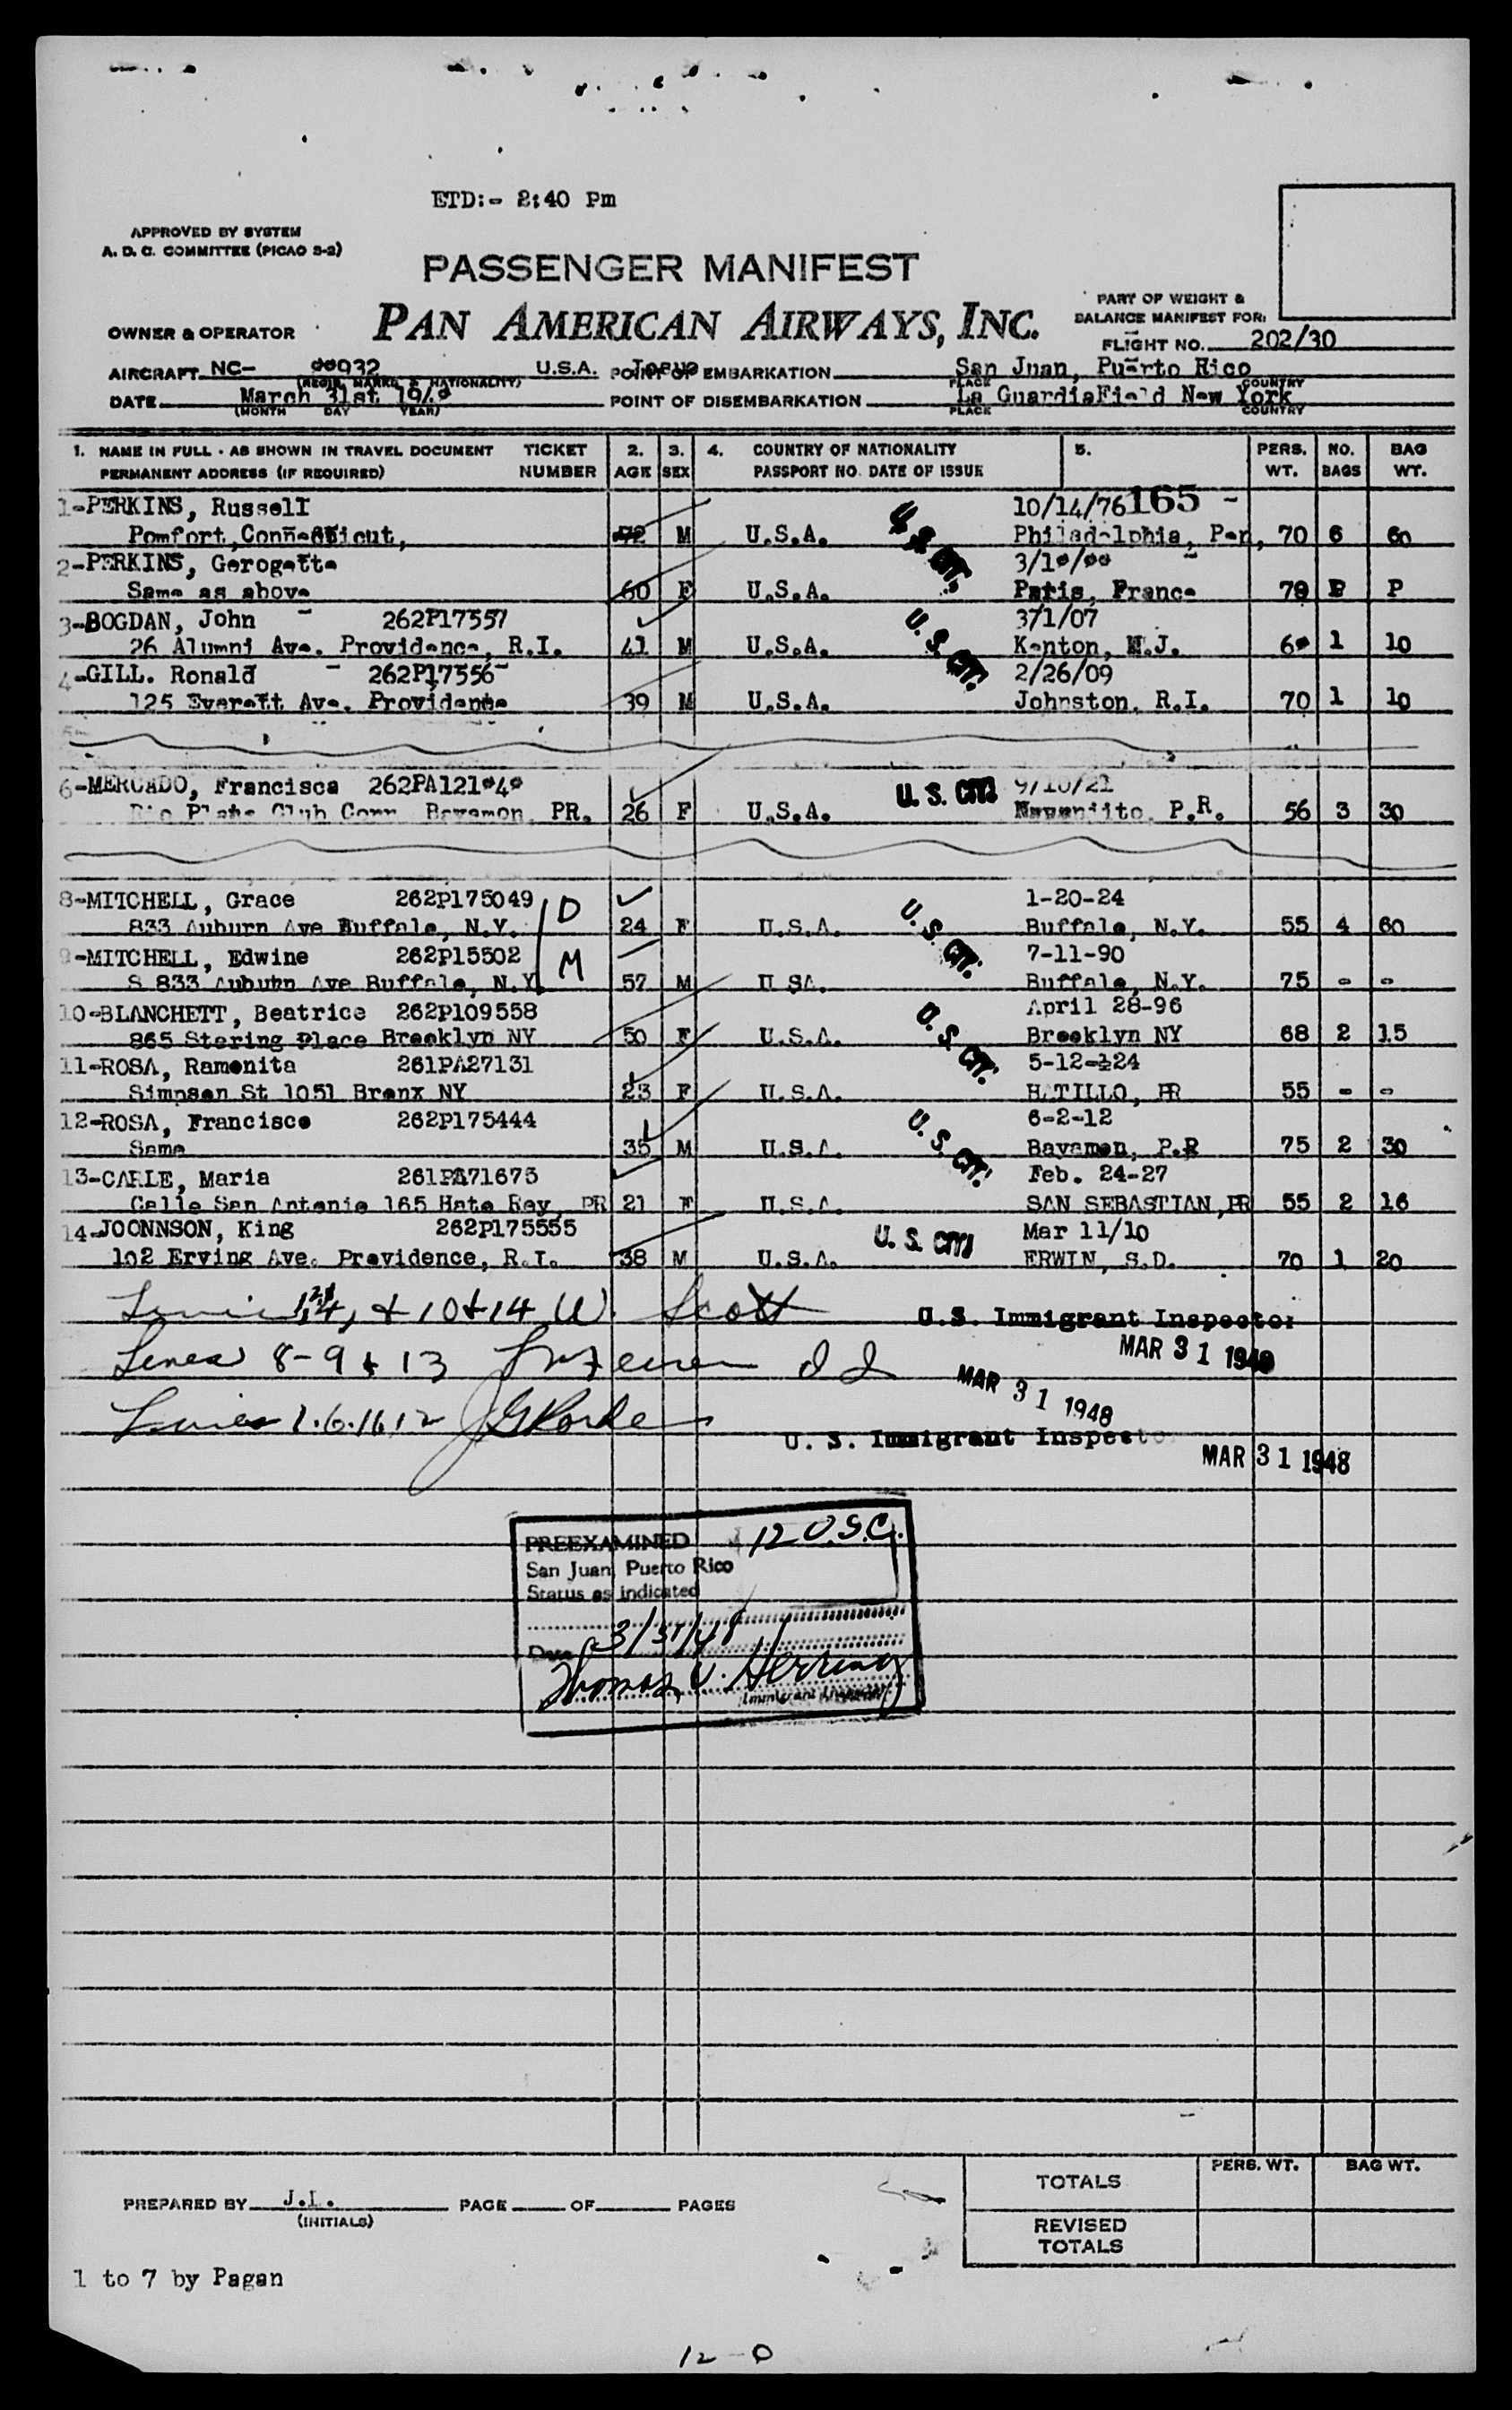 ETD:- 2:40 Pm
APPROVED BY SYSTEM
A. D. C. COMMITTEE (PICAO S-2)
PASSENGER MANIFEST
PAN AMERICAN AIRWAYS, INC.
OWNER & OPERATOR
PART OF WEIGHT &
BALANCE MANIFEST FOR:
FLIGHT NO. 202/30
AIRCRAFT NC- U.S.A. POINT OF EMBARKATION San Juan, Puerto Rico
(REGIS. MARKS & NATIONALITY) PLACE COUNTRY
DATE March 31st POINT OF DISEMBARKATION La GuardiaField New York
(MONTH DAY YEAR) PLACE COUNTRY
1. NAME IN FULL - AS SHOWN IN TRAVEL DOCUMENT TICKET 2. 3. 4. COUNTRY OF NATIONALITY 5. PERS. NO. BAG
PERMANENT ADDRESS (IF REQUIRED) NUMBER AGE SEX PASSPORT NO. DATE OF ISSUE WT. BAGS WT.
1-PERKINS, Russell 10/14/76 165 -
Pomfort, Connecticut, 72 M U.S.A. Philadelphia, Pen, 70 6 60
2-PERKINS, Gerogette
Same as above 60 F U.S.A. Paris, France P P
3-BOGDAN, John 262P17557 3/1/07
26 Alumni Ave. Providence, R.I. 41 M U.S.A. Kenton, N.J. 1 10
4-GILL. Ronald 262P17556 2/26/09
125 Everett Ave. Providence 39 M U.S.A. Johnston, R.I. 70 1 10
6-MERCADO, Francisca U. S. CIT. 9/10/21
Rio Plata Club Corr. Bayamon, PR. 26 F U.S.A. P.R. 56 3 30
8-MITCHELL, Grace 262P175049 D 1-20-24
833 Auburn Ave Buffalo, N.Y. 24 F U.S.A. U. S. CIT. Buffalo, N.Y. 55 4 60
9-MITCHELL, Edwine 262P15502 M 7-11-90
S 833 Auburn Ave Buffalo, N.Y. 57 M U SA. Buffalo, N.Y. 75 - -
10-BLANCHETT, Beatrice 262P109558 April 28-96
865 Stering Place Brooklyn NY 50 F U.S.A. U. S. CIT. Brooklyn NY 68 2 15
11-ROSA, Ramonita 261PA27131 5-12-24
Simpson St 1051 Bronx NY 23 F U.S.A. HATILLO, PR 55 - -
12-ROSA, Francisco 262P175444 6-2-12
Same 35 M U.S.A. U. S. CIT. Bayamon, P.R 75 2 30
13-CARLE, Maria 261PA71675 Feb. 24-27
Calle San Antonio 165 Hato Rey, PR 21 F U.S.A. SAN SEBASTIAN, PR 55 2 16
14-JOONNSON, King 262P175555 Mar 11/10
102 Erving Ave. Providence, R.I. 38 M U.S.A. U. S. CIT. ERWIN, S.D. 70 1 20
& 10 & 14 W. Scott U.S. Immigrant Inspector
MAR 31 1948
Lines 8-9 & 13
MAR 31 1948
Lines
U. S. Immigrant Inspector
MAR 31 1948
PREEXAMINED 12 U.S.C.
San Juan, Puerto Rico
Status as indicated
Date 3/31/48
Thomas V. Herring
Immigrant Inspector
TOTALS PERS. WT. BAG WT.
PREPARED BY J.L. PAGE OF PAGES
(INITIALS)
REVISED
TOTALS
1 to 7 by Pagan
12 - 0